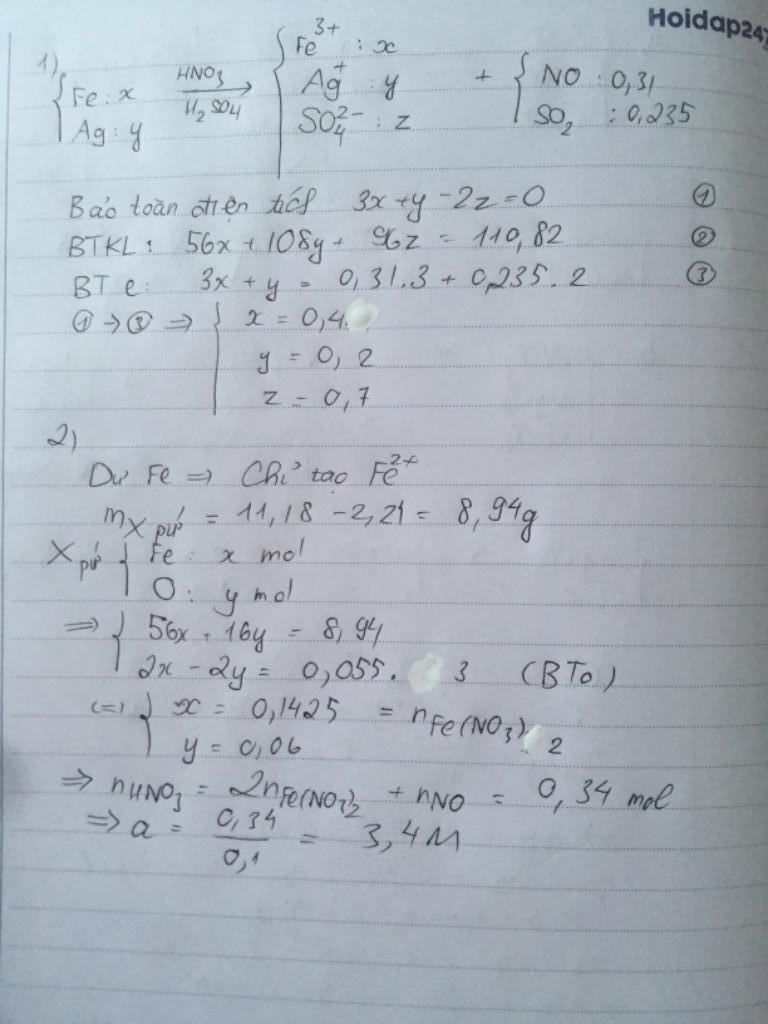 Hoidap247
1)
{ Fe: x
Ag: y
HNO3
H2SO4
{ Fe3+ : x
Ag+ : y
SO4 2- : z
+ { NO : 0,31
SO2 : 0,235
Bảo toàn điện tích 3x + y - 2z = 0 ①
BTKL: 56x + 108y + 96z = 110,82 ②
BT e: 3x + y = 0,31.3 + 0,235.2 ③
① → ③ ⇒ { x = 0,4
y = 0,2
z = 0,7
2)
Dư Fe ⇒ Chỉ tạo Fe2+
mX pứ = 11,18 - 2,24 = 8,94g
X pứ { Fe: x mol
O: y mol
⇒ { 56x + 16y = 8,94
2x - 2y = 0,055. 3 (BTo)
(=) { x = 0,1425 = nFe(NO3)2
y = 0,06
⇒ nHNO3 = 2nFe(NO3)2 + nNO = 0,34 mol
⇒ a = 0,34 / 0,1 = 3,4M